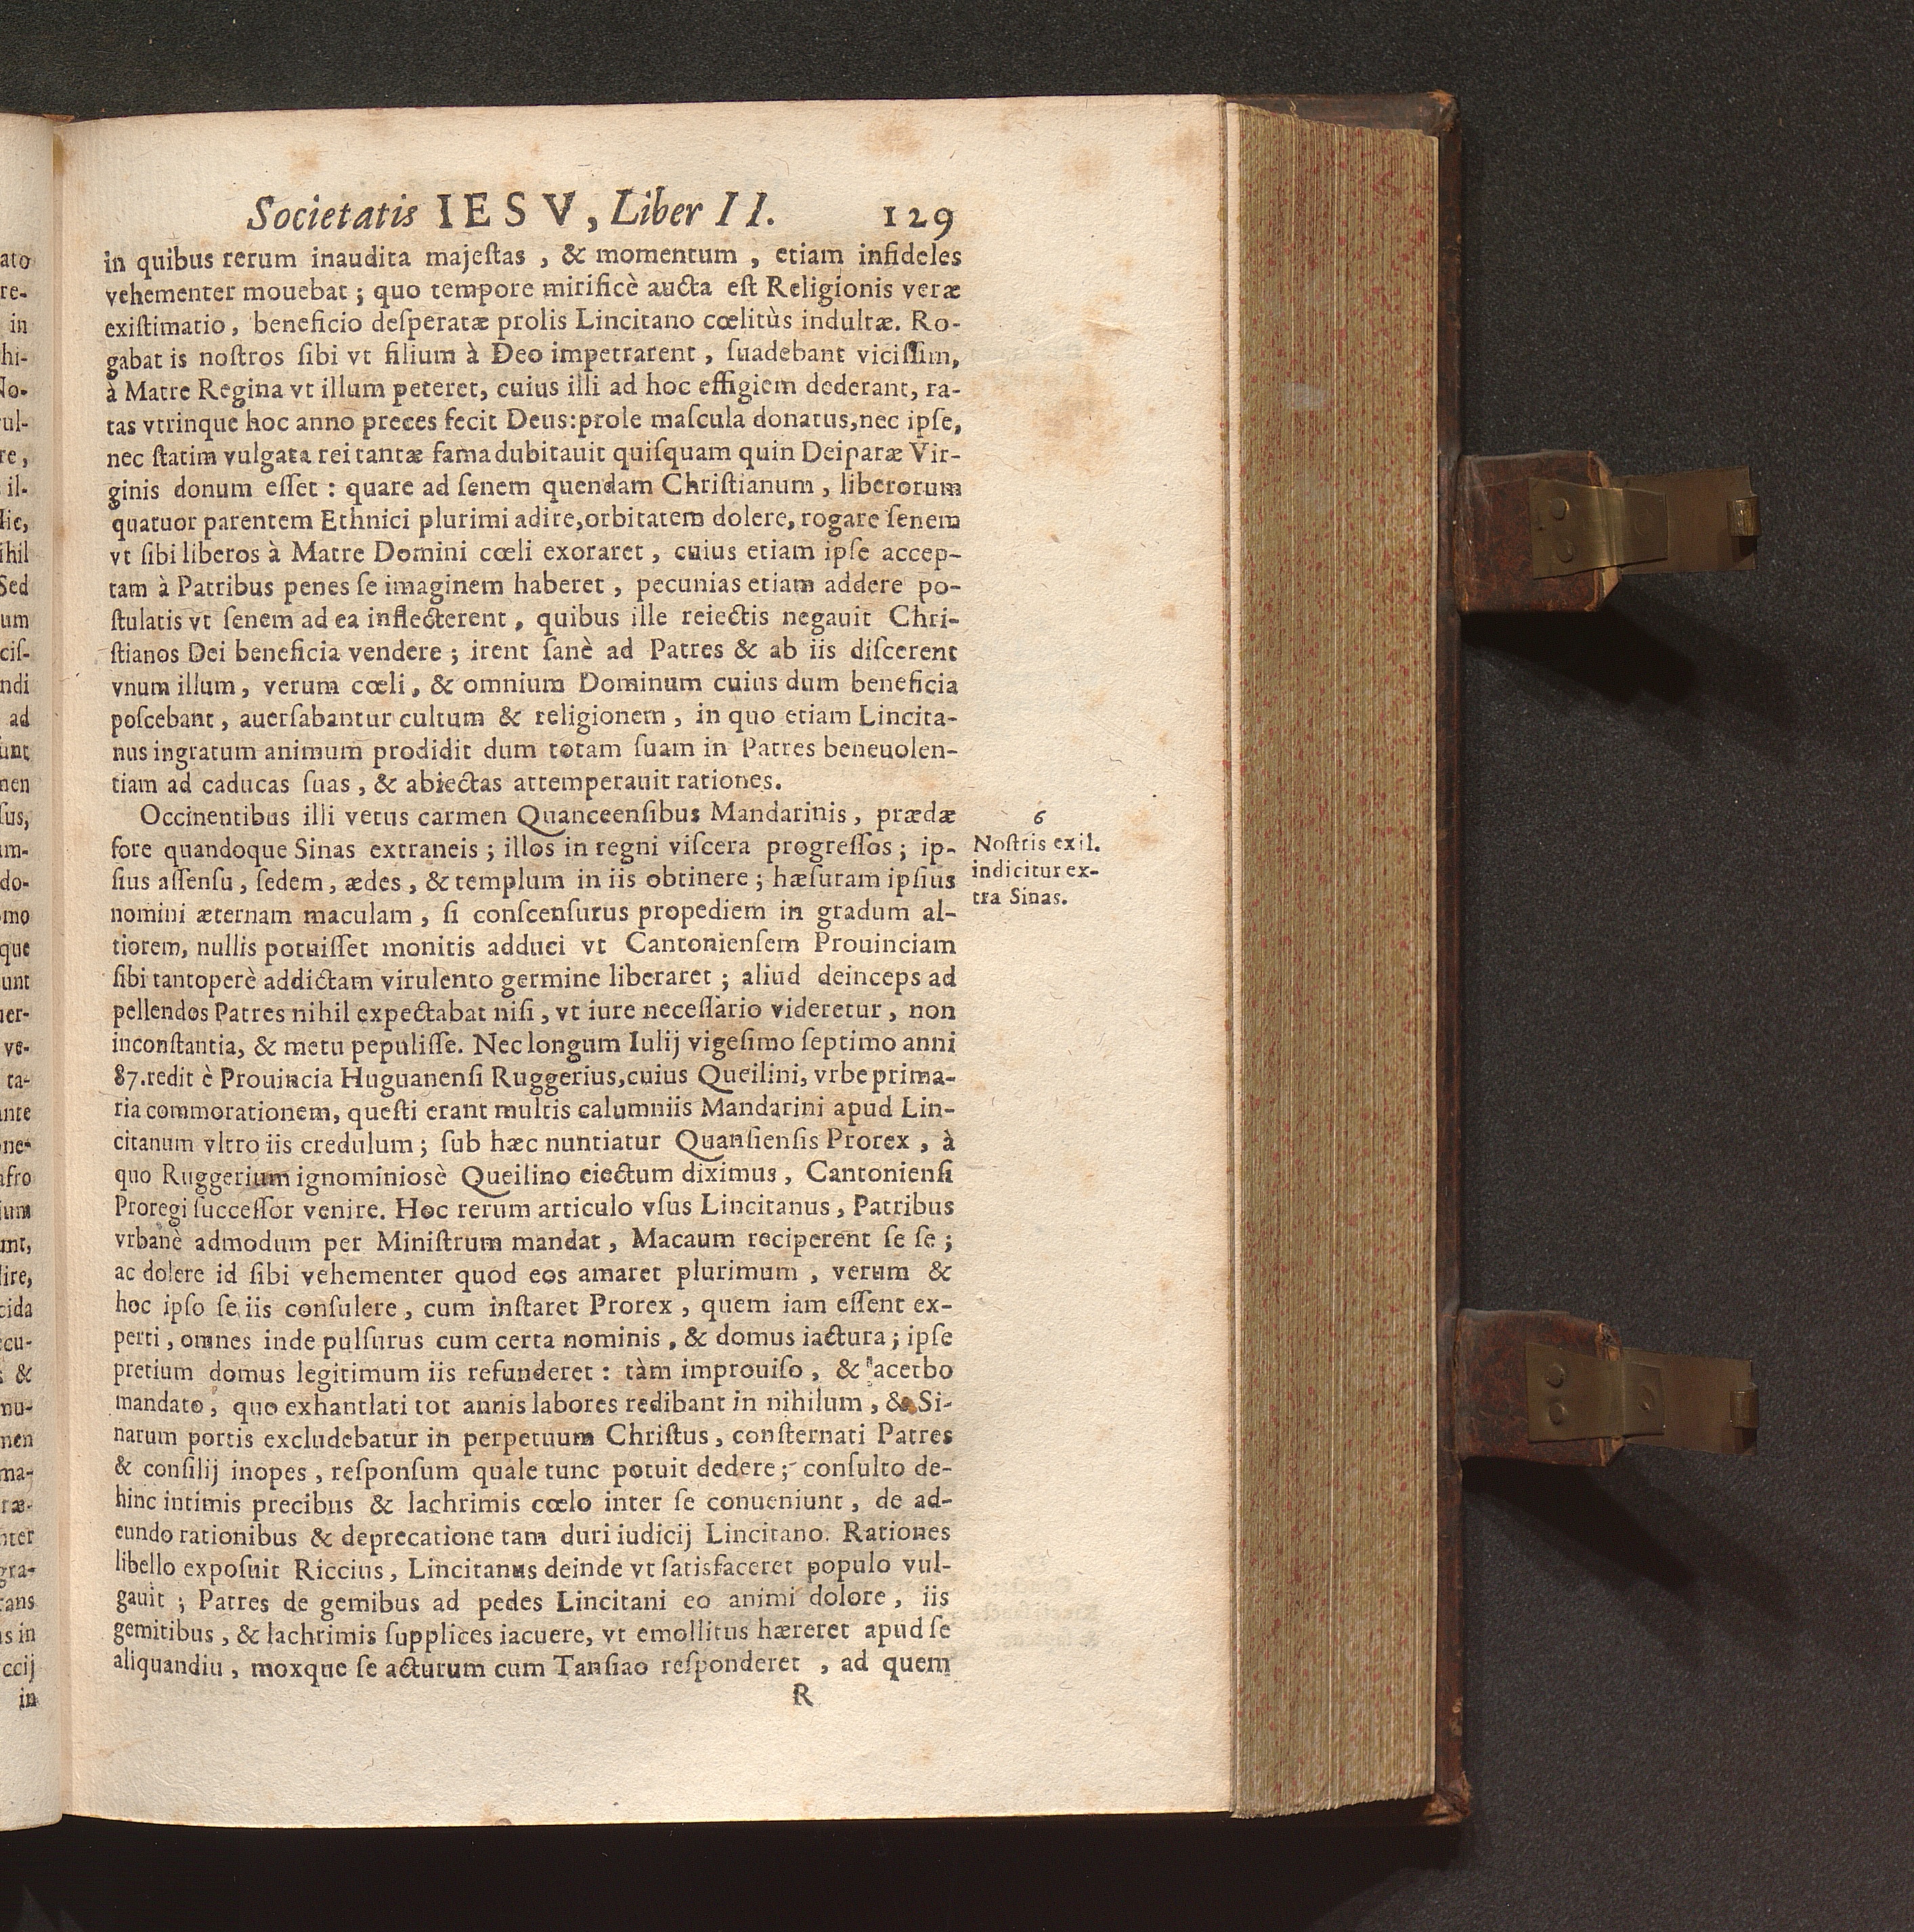 Societatis IESV, Liber II. 129
in quibus rerum inaudita majeſtas, & momentum, etiam infideles
vehementer mouebat; quo tempore mirificè aucta eſt Religionis veræ
exiſtimatio, beneficio deſperatæ prolis Lincitano cœlitùs indultæ. Ro-
gabat is noſtros ſibi vt filium à Deo impetrarent, ſuadebant viciſſim,
à Matre Regina vt illum peteret, cuius illi ad hoc effigiem dederant, ra-
tas vtrinque hoc anno preces fecit Deus: prole maſcula donatus, nec ipſe,
nec ſtatim vulgata rei tantæ fama dubitauit quiſquam quin Deiparæ Vir-
ginis donum eſſet: quare ad ſenem quendam Chriſtianum, liberorum
quatuor parentem Ethnici plurimi adire, orbitatem dolere, rogare ſenem
vt ſibi liberos à Matre Domini cœli exoraret, cuius etiam ipſe accep-
tam à Patribus penes ſe imaginem haberet, pecunias etiam addere po-
ſtulatis vt ſenem ad ea inflecterent, quibus ille reiectis negauit Chri-
ſtianos Dei beneficia vendere; irent ſanè ad Patres & ab iis diſcerent
vnum illum, verum cœli, & omnium Dominum cuius dum beneficia
poſcebant, auerſabantur cultum & religionem, in quo etiam Lincita-
nus ingratum animum prodidit dum totam ſuam in Patres beneuolen-
tiam ad caducas ſuas, & abiectas attemperauit rationes.
Occinentibus illi vetus carmen Quanceenſibus Mandarinis, prædæ
fore quandoque Sinas extraneis; illos in regni viſcera progreſſos; ip-
ſius aſſenſu, ſedem, ædes, & templum in iis obtinere; hæſuram ipſius
nomini æternam maculam, ſi conſcenſurus propediem in gradum al-
tiorem, nullis potuiſſet monitis adduci vt Cantonienſem Prouinciam
ſibi tantoperè addictam virulento germine liberaret; aliud deinceps ad
pellendos Patres nihil expectabat niſi, vt iure neceſſario videretur, non
inconſtantia, & metu pepuliſſe. Nec longum Iulij vigeſimo ſeptimo anni
87. redit è Prouincia Huguanenſi Ruggerius, cuius Queilini, vrbe prima-
ria commorationem, queſti erant multis calumniis Mandarini apud Lin-
citanum vltro iis credulum; ſub hæc nuntiatur Quanſienſis Prorex, à
quo Ruggerium ignominiosè Queilino eiectum diximus, Cantonienſi
Proregi ſucceſſor venire. Hoc rerum articulo vſus Lincitanus, Patribus
vrbanè admodum per Miniſtrum mandat, Macaum reciperent ſe ſe;
ac dolere id ſibi vehementer quod eos amaret plurimum, verum &
hoc ipſo ſe iis conſulere, cum inſtaret Prorex, quem iam eſſent ex-
perti, omnes inde pulſurus cum certa nominis, & domus iactura; ipſe
pretium domus legitimum iis refunderet: tàm improuiſo, & acerbo
mandato, quo exhantlati tot annis labores redibant in nihilum, & Si-
narum portis excludebatur in perpetuum Chriſtus, conſternati Patres
& conſilij inopes, reſponſum quale tunc potuit dedere; conſulto de-
hinc intimis precibus & lachrimis cœlo inter ſe conueniunt, de ad-
eundo rationibus & deprecatione tam duri iudicij Lincitano. Rationes
libello expoſuit Riccius, Lincitanus deinde vt ſatisfaceret populo vul-
gauit; Patres de gemibus ad pedes Lincitani eo animi dolore, iis
gemitibus, & lachrimis ſupplices iacuere, vt emollitus hæreret apud ſe
aliquandiu, moxque ſe acturum cum Tanſiao reſponderet, ad quem
R
6
Noſtris exil.
indicitur ex-
tra Sinas.
ato
re-
in
hi-
No-
ul-
re,
il-
ihil
Sed
um
ciſ-
ndi
ad
unt
nen
ſus,
um-
do-
omo
que
unt
uer-
ve-
ta-
ante
one-
afro
ium
unt,
cida
ecu-
&
nu-
men
ma-
ræ-
nter
gra-
rans
us in
ccij
in